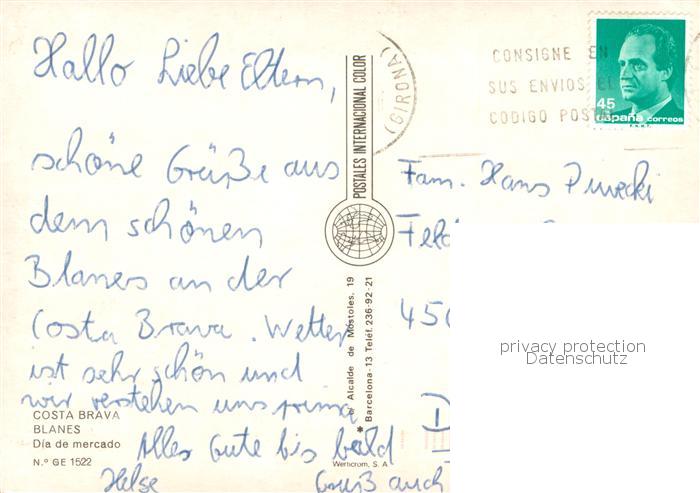 Hallo Liebe Eltern,
schöne Grüße aus
dem schönen
Blanes an der
Costa Brava. Wetter
ist sehr schön und
wir verstehen uns prima
Alles Gute bis bald
Helge
Gruß auch
COSTA BRAVA
BLANES
Día de mercado
N.º GE 1522
POSTALES INTERNACIONAL COLOR
Alcalde de Móstoles, 19
Barcelona-13 Teléf. 236-92-21
Werticrom, S. A.
(GIRONA)
CONSIGNE EN
SUS ENVIOS EL
CODIGO POSTAL
45
españa correos
F.N.M.T.
Fam. Hans
Feld
450
privacy protection
Datenschutz